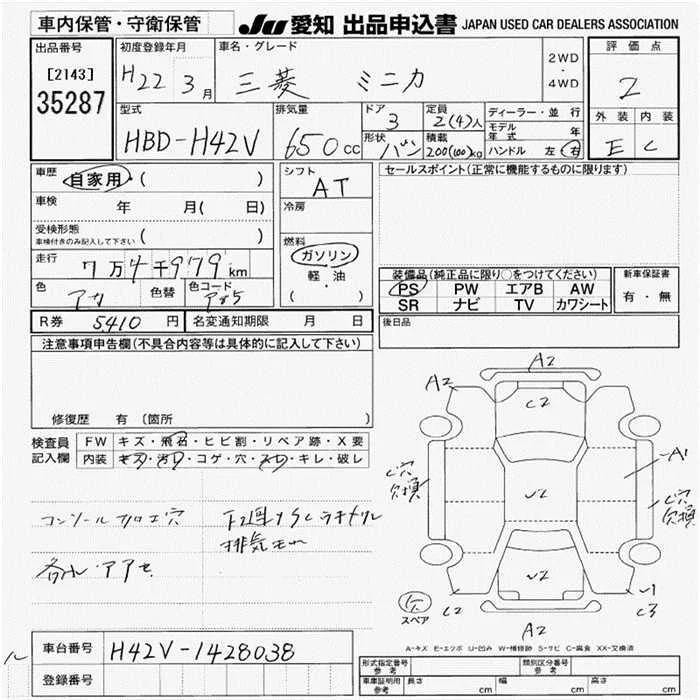 車内保管・守衛保管
JU 愛知 出品申込書 JAPAN USED CAR DEALERS ASSOCIATION
出品番号
[2143]
35287
初度登録年月
H22 3月
車名・グレード
三菱 ミニカ
2WD
・
4WD
評価点
2
外装 内装
E C
型式
HBD-H42V
排気量
650cc
ドア
3
形状
バン
定員
2(4)人
積載
200(100)kg
ディーラー・並行
モデル年式 年
ハンドル 左 右
車歴
自家用 ( )
車検 年 月( 日)
受検形態
車検付きのみ記入して下さい ( )
走行 7万4千979km
色 アカ 色替 色コード
シフト
AT
冷房
燃料
ガソリン
軽・油
( )
セールスポイント(正常に機能するものに限ります)
装備品(純正品に限り○をつけてください)
PS PW エアB AW
SR ナビ TV カワシート
新車保証書
有・無
R券 5410円 名変通知期限 月 日
後日品
注意事項申告欄(不具合内容等は具体的に記入して下さい)
修復歴 有 〔箇所 〕
検査員記入欄
FW キズ・飛石・ヒビ割・リペア跡・X要
内装 キズ・汚れ・コゲ・穴・スレ・キレ・破レ
コンソール 加工穴
下廻り SC
排気モレ
A2
A2
C2
A1
C穴
欠損
C穴
欠損
U2
U2
スペア
C2
A2
U1
C3
A-キズ E-エクボ U-凹み W-補修跡 S-サビ C-腐食 XX-交換済
車台番号 H42V-1428038
登録番号
形式指定番号 参考
類別区分番号 参考
車庫証明用 参考 長さ cm 幅 cm 高さ cm